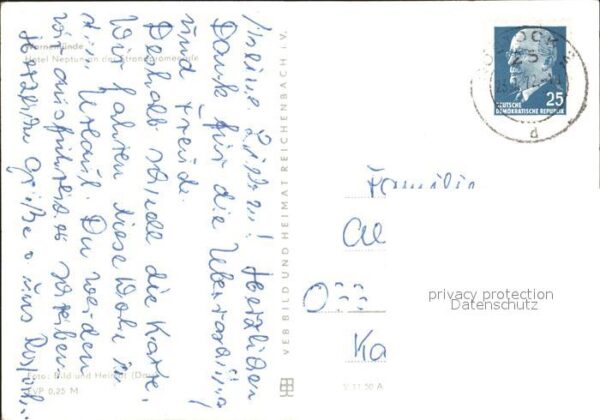 Warnemünde
Hotel Neptun an der Strandpromenade
Meine Lieben! Herzlichen
Dank für die Überraschung
und Freude.
Deshalb schnell die Karte.
Wir fahren diese Woche in
den Urlaub. Du werden
wir ausführlich schreiben
Herzliche Grüße
Foto: Bild und Heimat
EVP 0,25 M
VEB BILD UND HEIMAT REICHENBACH i. V.
V 11 50 A
25
DEUTSCHE
DEMOKRATISCHE REPUBLIK
d
Familie
Al
O
Ka
privacy protection
Datenschutz